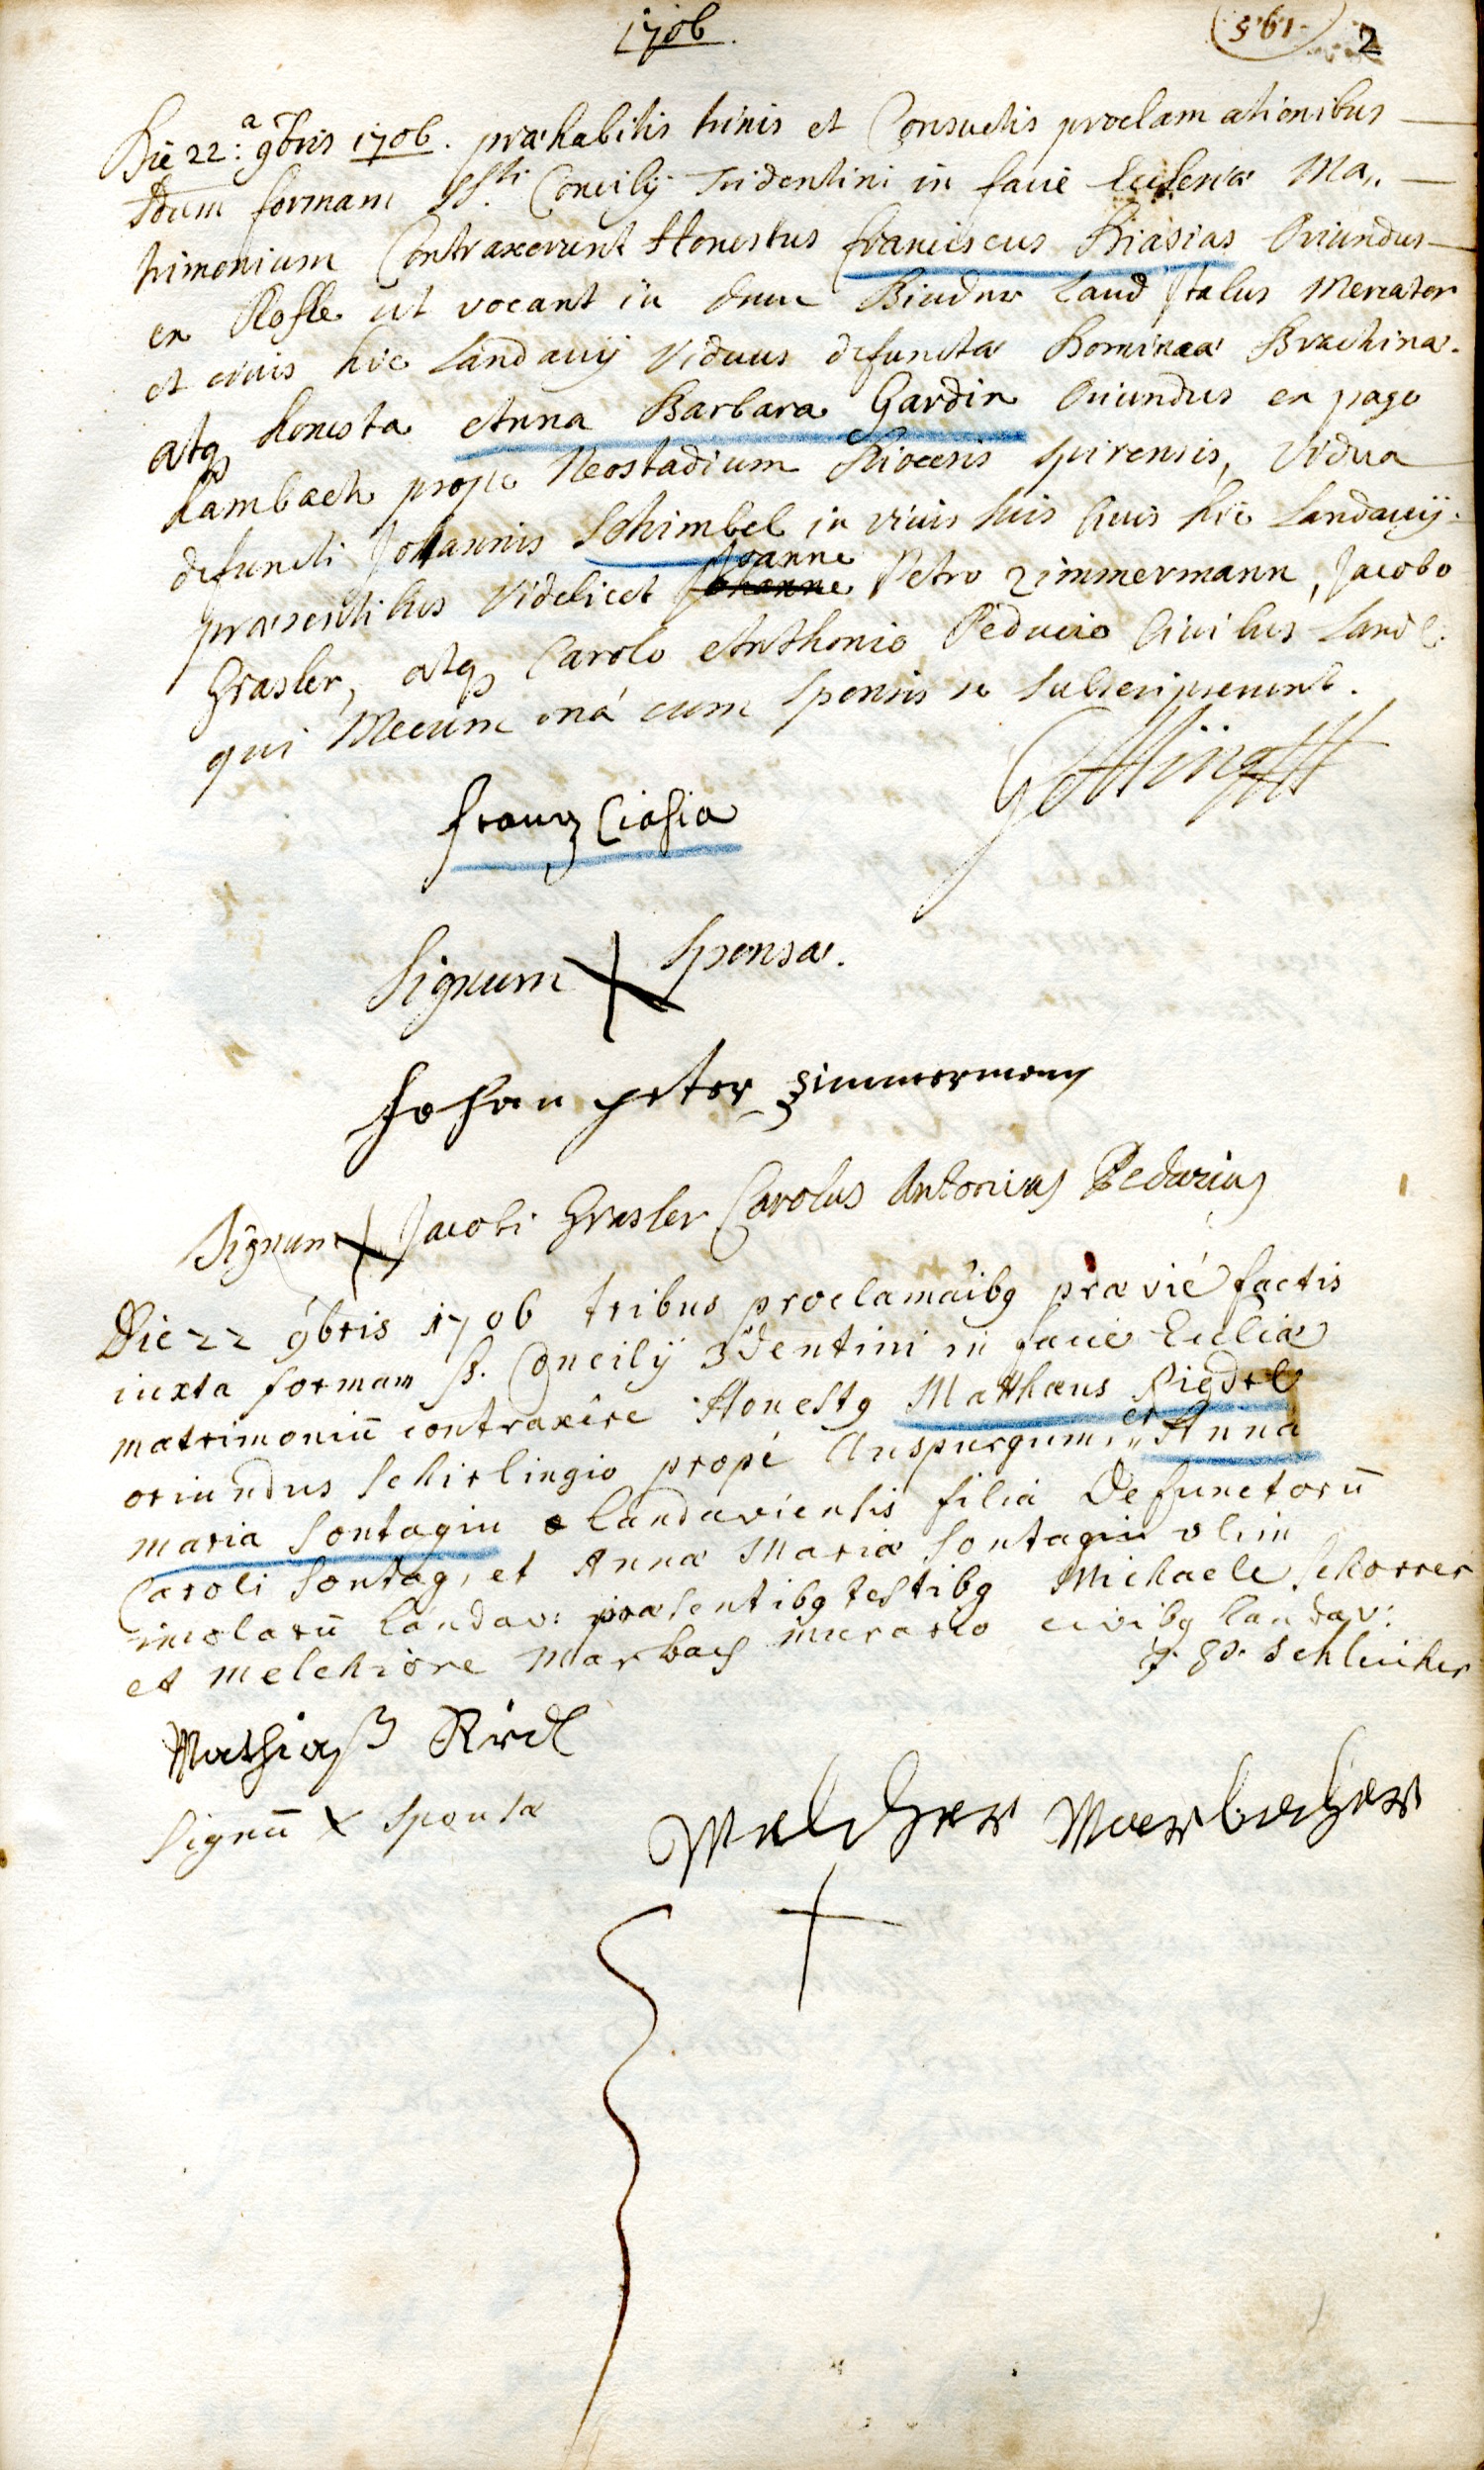 1706.
195 2
Die 22:a 9bris 1706. præhabitis trinis et Consuetis proclamationibus
formam SSti. Concilÿ Tridentini in facie Ecclesiæ Ma„
trimonium Contraxerunt Honestus franciscus Riasias Oriundus
ex Rofle ut vocant in dem Bindner Land Italus Mercator
et civis hic Landavÿ Viduus defunctæ Dominææ Brachinæ.
atq honesta Anna Barbara Gardin Oriundus ex pago
Lambach prope Neostadium Diocesis Spirensis, Vidua
defuncti Johannis Schimbel in vivis suis Civis hic Landavÿ.
præsentibus Videlicet Joanne Petro Zimmermann, Jacobo
Grasler, atq Carolo Anthonio Peducio Civibus Land:
qui Mecum unà cum Sponsis se Subscripserunt.
Göttling
frantz Ciasia
Signum X Sponsæ.
Johan peter zimmermann
Signum X Jacobi Grasler Carolus Antonius Peducius
Die 22 9bris 1706 tribus proclamaïbq prævié factis
iuxta formam S. Concilÿ 3dentini in facie Eccliæ
matrimoniū contraxêre Honestq Matthæus Riedel
oriundus Schirlingio propé Auspurgum, „ et Anna
maria Sontagin Landaviensis filia Defunctorū
Caroli Sontag, et Annæ Mariæ Sontagin olim
incolarū Landav: præsentibq testibq Michaele Schorrer
et melchiore Marbach murario civibq Landav:
Schleicher
Mathiaß Ridl
Signū x Sponsæ
Melcher Marbacher